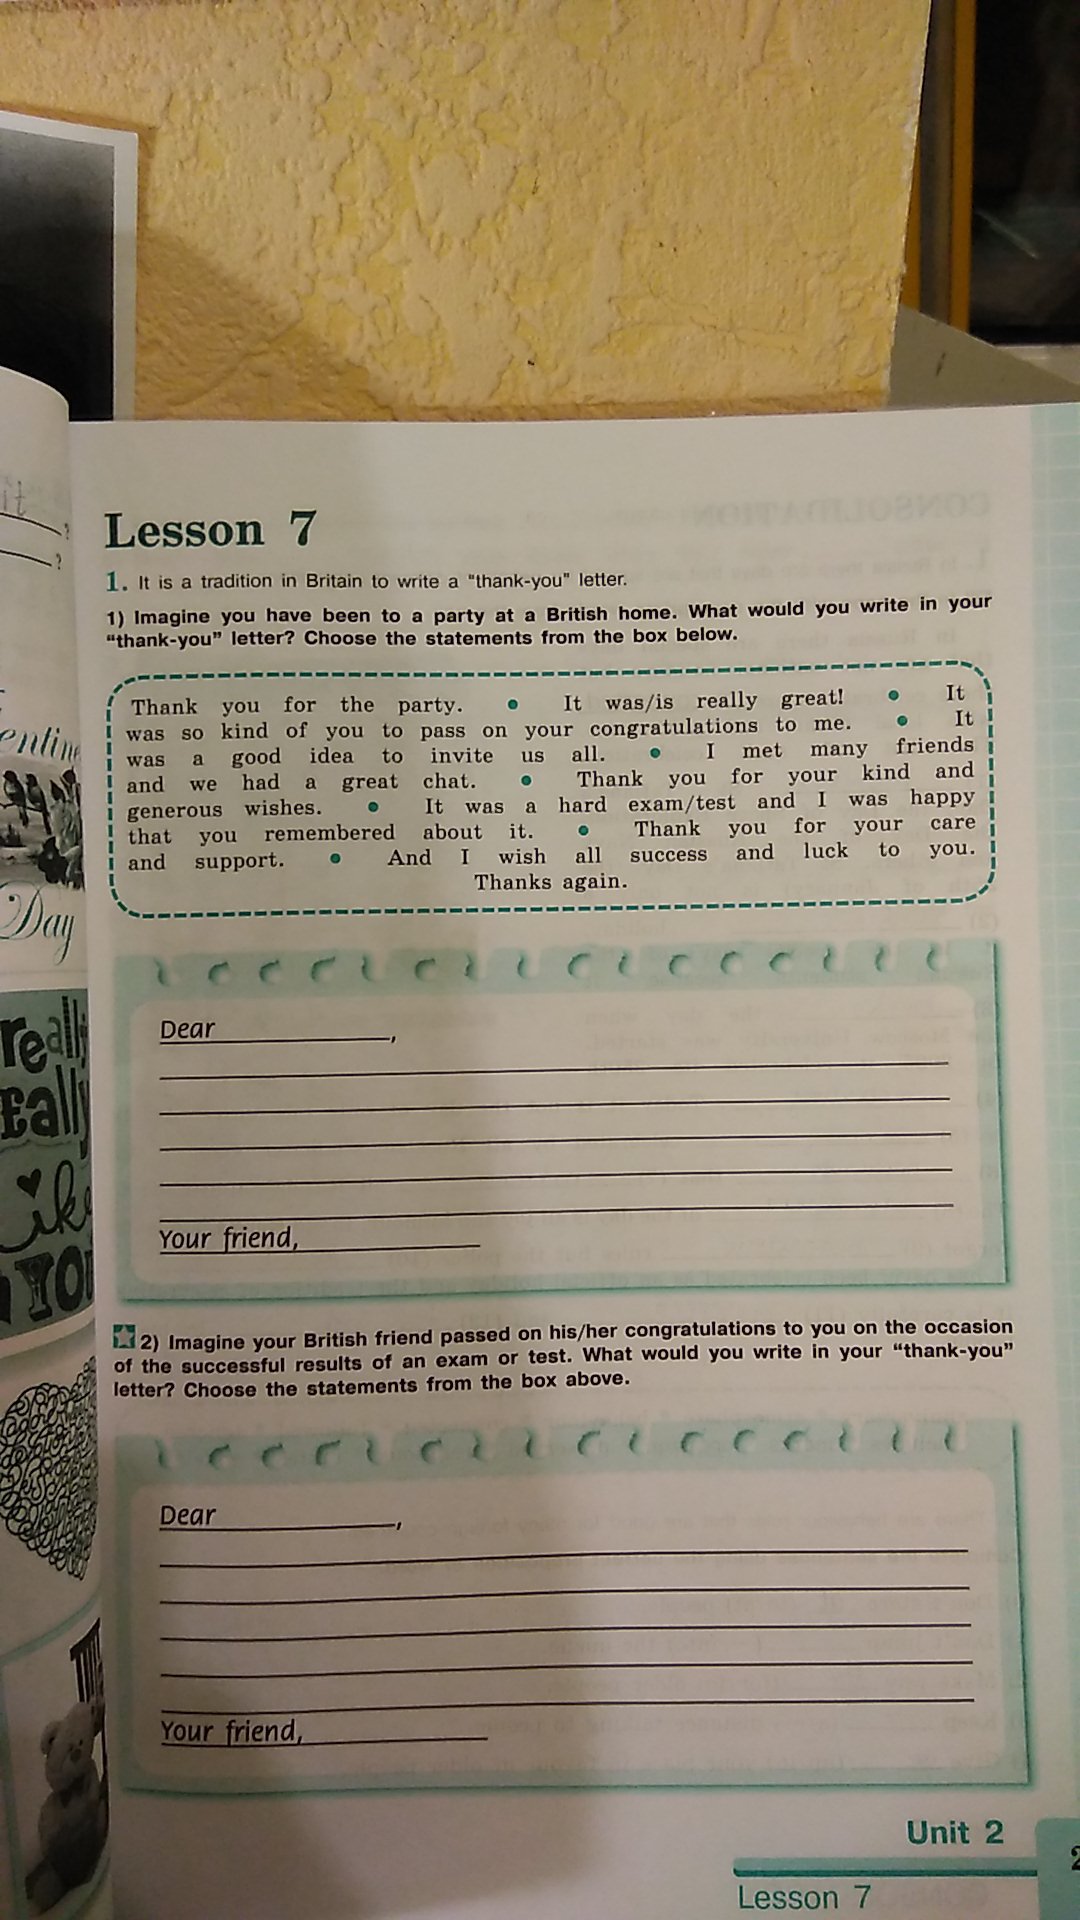 it
?
?
entine
Day
really
really
like
YOU
Lesson 7
1. It is a tradition in Britain to write a "thank-you" letter.
1) Imagine you have been to a party at a British home. What would you write in your
"thank-you" letter? Choose the statements from the box below.
Thank you for the party. • It was/is really great! • It
was so kind of you to pass on your congratulations to me. • It
was a good idea to invite us all. • I met many friends
and we had a great chat. • Thank you for your kind and
generous wishes. • It was a hard exam/test and I was happy
that you remembered about it. • Thank you for your care
and support. • And I wish all success and luck to you.
Thanks again.
Dear ____________,
Your friend, ____________
2) Imagine your British friend passed on his/her congratulations to you on the occasion
of the successful results of an exam or test. What would you write in your "thank-you"
letter? Choose the statements from the box above.
Dear ____________,
Your friend, ____________
Unit 2
2
Lesson 7